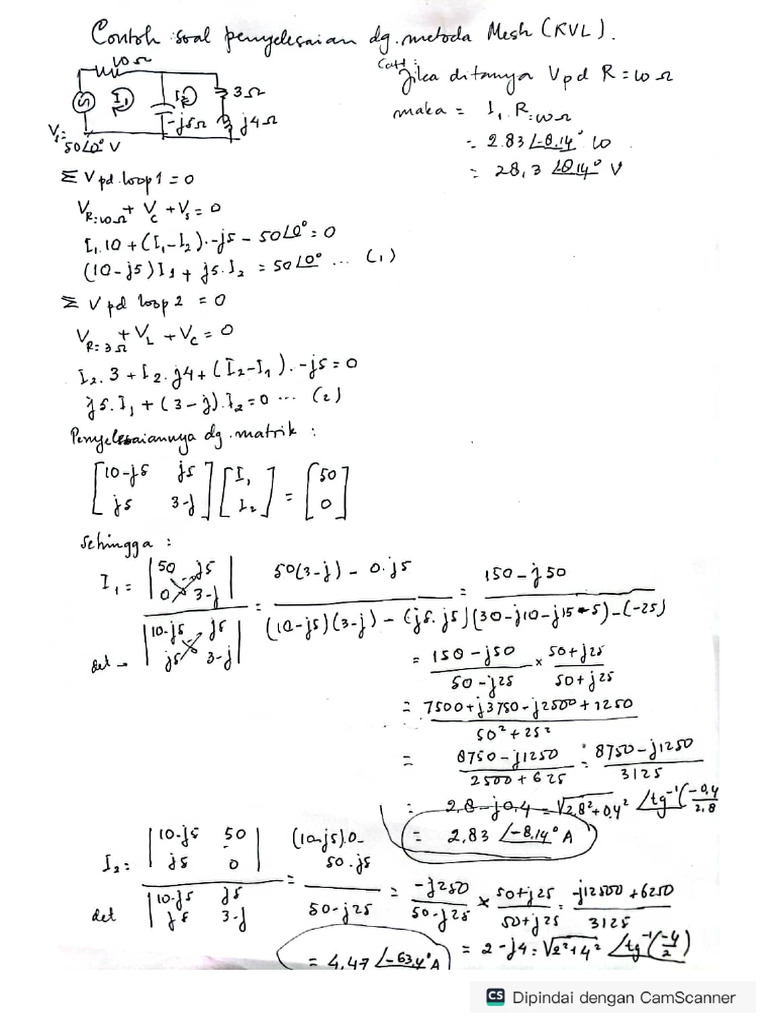 Contoh soal penyelesaian dg. metoda Mesh (KVL).
10Ω
I₁
I₂
3Ω
-j5Ω
j4Ω
V₁=
50∠0° V
Catt:
Jika ditanya V pd R=10Ω
maka = I₁.R=10Ω
= 2.83∠-8.14° 10
= 28,3∠8.14° V
Σ V pd loop 1 = 0
V R=10Ω + Vc + Vs = 0
I₁.10 + (I₁-I₂).-j5 - 50∠0° = 0
(10-j5)I₁ + j5.I₂ = 50∠0° ... (1)
Σ V pd loop 2 = 0
V R=3Ω + VL + Vc = 0
I₂.3 + I₂.j4 + (I₂-I₁).-j5 = 0
j5.I₁ + (3-j).I₂ = 0 ... (2)
Penyelesaiannya dg. matrik :
[10-j5 j5] [I₁] = [50]
[j5 3-j] [I₂] [0]
Sehingga :
I₁ = |50 j5| = 50(3-j) - 0.j5 = 150-j50
|0 3-j|
det → |10-j5 j5| (10-j5)(3-j) - (j5.j5) (30-j10-j15-5)-(-25)
|j5 3-j|
= 150-j50 × 50+j25
50-j25 50+j25
= 7500+j3750-j2500+1250
50²+25²
= 8750-j1250 = 8750-j1250
2500+625 3125
= 2,8-j0,4 = √2,8²+0,4² ∠tg⁻¹(-0,4
2,8
= 2,83 ∠-8,14° A
I₂ = |10-j5 50| = (10-j5).0- = -j250 × 50+j25 = -j12500+6250
|j5 0| 50.j5
det |10-j5 j5| 50-j25 50-j25 50+j25 3125
|j5 3-j|
= 2-j4 = √2²+4² ∠tg⁻¹(-4
2)
= 4,47 ∠-63,4° A
CS Dipindai dengan CamScanner